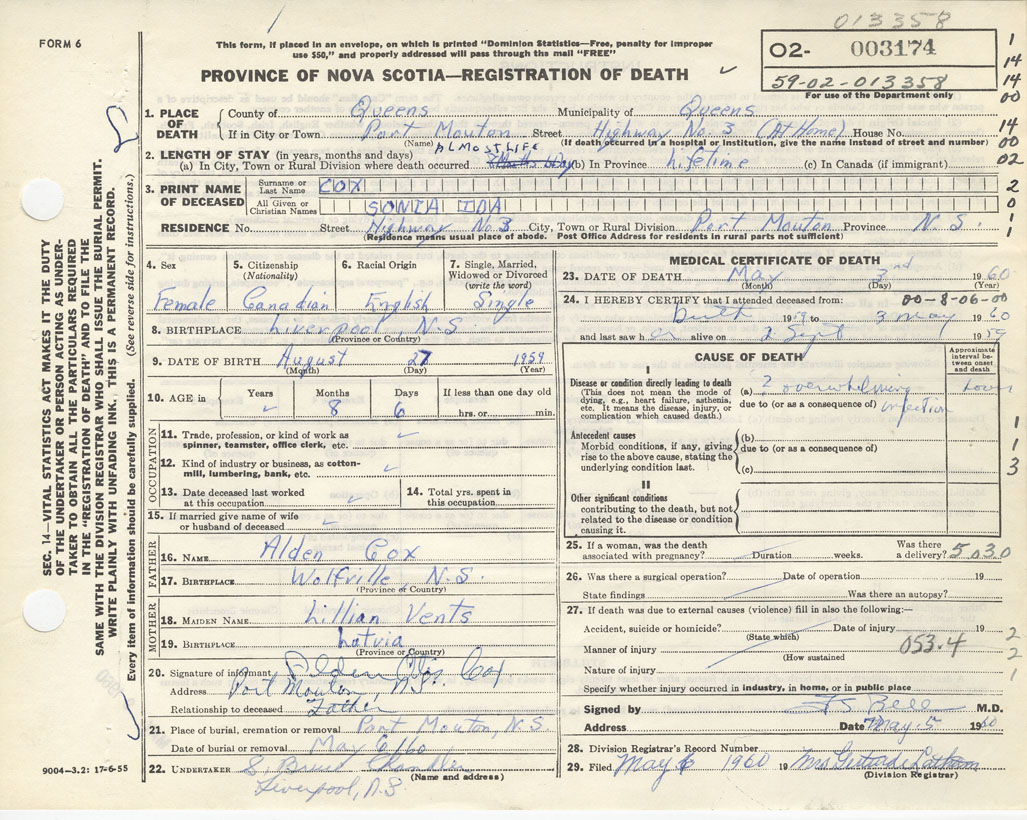 013358
FORM 6
This form, if placed in an envelope, on which is printed "Dominion Statistics—Free, penalty for improper
use $50," and properly addressed will pass through the mail "FREE"
PROVINCE OF NOVA SCOTIA—REGISTRATION OF DEATH
O2- 003174
59-02-013358
For use of the Department only
1
14
14
00
14
00
02
2
0
1
1. PLACE OF DEATH
County of Queens Municipality of Queens
If in City or Town Port Mouton Street Highway No. 3 (At Home) House No.
(Name) (If death occurred in a hospital or institution, give the name instead of street and number)
2. LENGTH OF STAY (in years, months and days) ALMOST LIFE
(a) In City, Town or Rural Division where death occurred (b) In Province Lifetime (c) In Canada (if immigrant)
3. PRINT NAME OF DECEASED
Surname or Last Name COX
All Given or Christian Names SONIA IDA
RESIDENCE No. Street Highway No 3 City, Town or Rural Division Port Mouton Province N.S.
(Residence means usual place of abode. Post Office Address for residents in rural parts not sufficient)
4. Sex 5. Citizenship (Nationality) 6. Racial Origin 7. Single, Married, Widowed or Divorced (write the word)
Female Canadian English Single
8. BIRTHPLACE Liverpool, N.S.
(Province or Country)
9. DATE OF BIRTH August 27 1959
(Month) (Day) (Year)
10. AGE in Years Months Days If less than one day old
8 6 hrs. or min.
OCCUPATION
11. Trade, profession, or kind of work as spinner, teamster, office clerk, etc.
12. Kind of industry or business, as cotton-mill, lumbering, bank, etc.
13. Date deceased last worked at this occupation 14. Total yrs. spent in this occupation
15. If married give name of wife or husband of deceased
FATHER
16. NAME Alden Cox
17. BIRTHPLACE Wolfville, N.S.
(Province or Country)
MOTHER
18. MAIDEN NAME Lillian Vents
19. BIRTHPLACE Latvia
(Province or Country)
20. Signature of informant Alden Cox
Address Port Mouton, N.S.
Relationship to deceased Father
21. Place of burial, cremation or removal Port Mouton, N.S.
Date of burial or removal May 6/60
22. UNDERTAKER
(Name and address)
Liverpool, N.S
MEDICAL CERTIFICATE OF DEATH
23. DATE OF DEATH May 3rd 1960
(Month) (Day) (Year)
24. I HEREBY CERTIFY that I attended deceased from: 00-8-06-00
birth 19 to 3 May 1960
and last saw her alive on 2 Sept 1959
CAUSE OF DEATH
Approximate interval between onset and death
I
Disease or condition directly leading to death
(This does not mean the mode of dying, e.g., heart failure, asthenia, etc. It means the disease, injury, or complication which caused death.)
(a) ? overwhelming
due to (or as a consequence of) infection
Antecedent causes
Morbid conditions, if any, giving rise to the above cause, stating the underlying condition last.
(b)
due to (or as a consequence of)
(c)
II
Other significant conditions
contributing to the death, but not related to the disease or condition causing it.
1
1
3
25. If a woman, was the death associated with pregnancy? Duration weeks. Was there a delivery? 5030
26. Was there a surgical operation? Date of operation 19
State findings Was there an autopsy?
27. If death was due to external causes (violence) fill in also the following:—
Accident, suicide or homicide? Date of injury 19 2
(State which)
Manner of injury 053.4 2
(How sustained
Nature of injury 1
Specify whether injury occurred in industry, in home, or in public place
Signed by M.D.
Address Date May 5 1960
28. Division Registrar's Record Number
29. Filed May 6 1960 19 Mrs
(Division Registrar)
SEC. 14—VITAL STATISTICS ACT MAKES IT THE DUTY
OF THE UNDERTAKER OR PERSON ACTING AS UNDER-
TAKER TO OBTAIN ALL THE PARTICULARS REQUIRED
IN THE "REGISTRATION OF DEATH" AND TO FILE THE
SAME WITH THE DIVISION REGISTRAR WHO SHALL ISSUE THE BURIAL PERMIT.
WRITE PLAINLY WITH UNFADING INK. THIS IS A PERMANENT RECORD.
Every item of information should be carefully supplied. (See reverse side for instructions.)
9004-3.2: 17-6-55